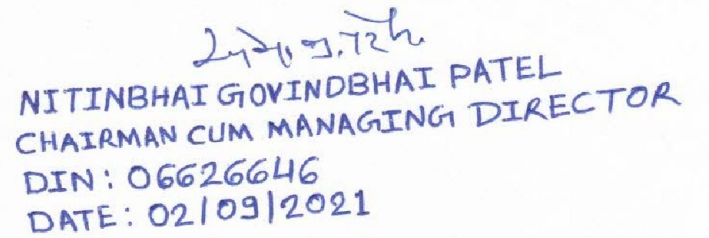 NITINBHAI GOVINDBHAI PATEL
CHAIRMAN CUM MANAGING DIRECTOR
DIN: 06626646
DATE: 02/09/2021